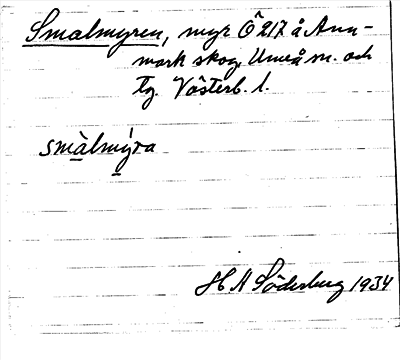 Smalmyren, myr Ö 217 å Ann-
mark skog, Umeå m. och
tg. Västerb. l.
smàlmýra
H A Söderberg 1934